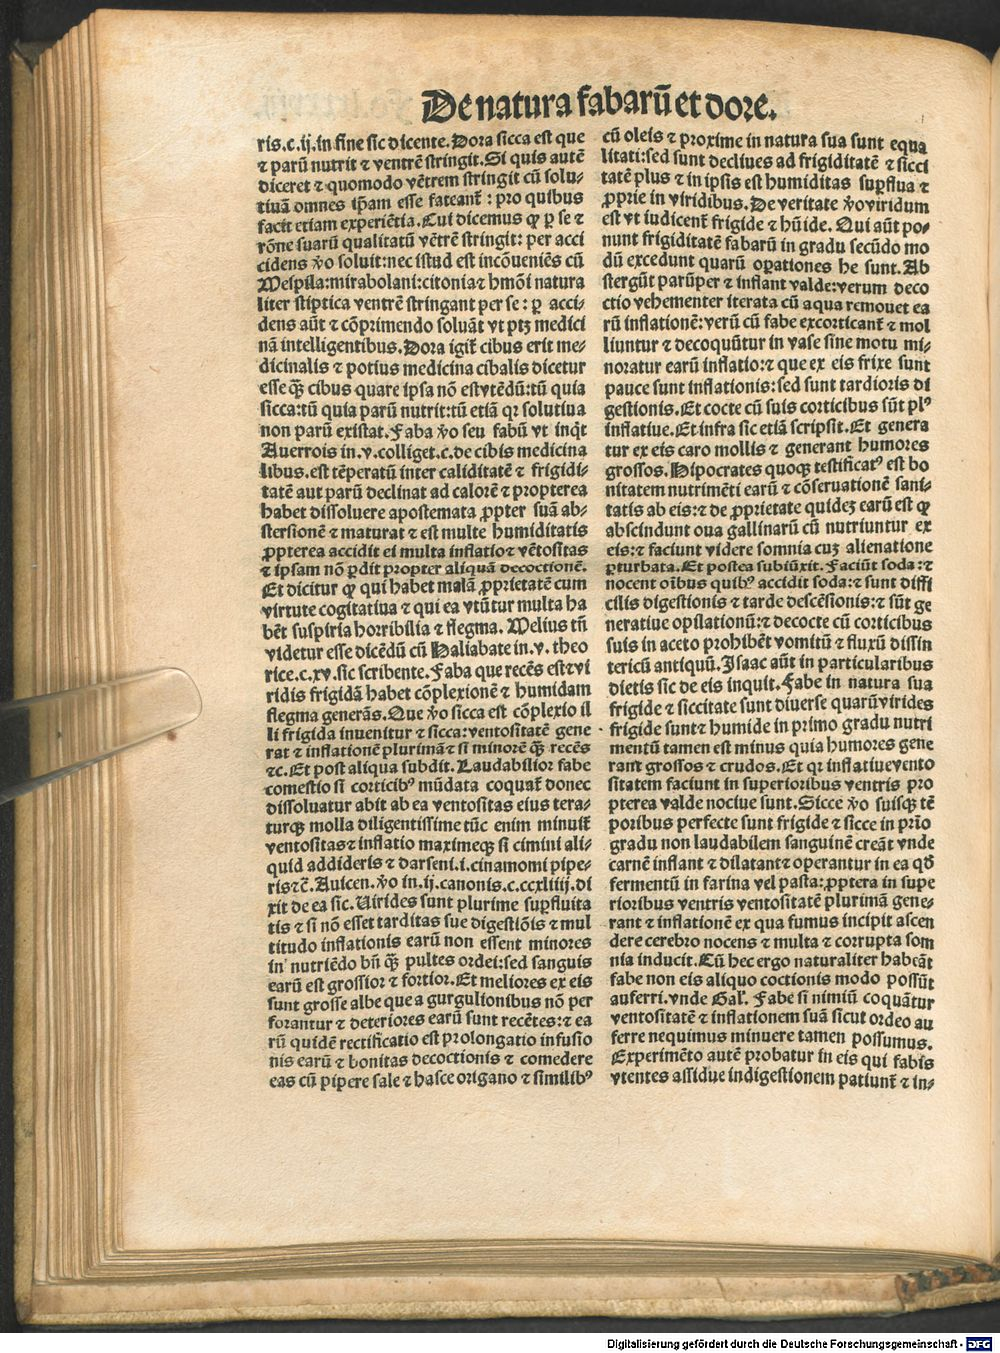 De natura fabarū et dore.
ris.c.ij.in fine sic dicente. Dora sicca est que
⁊ parū nutrit ⁊ ventrē stringit. Si quis autē
diceret ⁊ quomodo vētrem stringit cū solu-
tiuā omnes ip̄am esse fateant᷑ : pro quibus
facit etiam experiētia. Cui dicemus ꝙ ꝑ se ⁊
rōne suarū qualitatū vētrē stringit: per acci
cidens ṽo soluit: nec istud est incōueniēs cū
Mespila: mirabolani: citonia ⁊ hmōi natura
liter stiptica ventrē stringant per se : ꝑ acci-
dens aūt ⁊ cōprimendo soluāt vt ptꝫ medici
nā intelligentibus. Dora igit᷑ cibus erit me-
dicinalis ⁊ potius medicina cibalis dicetur
esse q̄ꝫ cibus quare ipsa nō est vtēdū: tū quia
sicca: tū quia parū nutrit: tū etiā qꝛ solutiua
non parū existat. Faba ṽo seu fabū vt inq̇t
Auerrois in .v. colliget. c. de cibis medicina
libus. est tēperatū inter caliditatē ⁊ frigidi-
tatē aut parū declinat ad calorē ⁊ propterea
habet dissoluere apostemata ꝓpter suā ab-
stersionē ⁊ maturat ⁊ est multe humiditatis
ꝓpterea accidit ei multa inflatio ⁊ vētositas
⁊ ipsam nō ꝑdit propter aliquā decoctionē.
Et dicitur ꝙ qui habet malā ꝓprietatē cum
virtute cogitatiua ⁊ qui ea vtūtur multa ha
bēt suspiria horribilia ⁊ flegma. Melius tn̄
videtur esse dicēdū cū Haliabate in .v. theo
rice. c. xv. sic scribente. Faba que recēs est ⁊ vi
ridis frigidā habet cōplexionē ⁊ humidam
flegma generās. Que ṽo sicca est cōplexio il
li frigida inuenitur ⁊ sicca: ventositatē gene
rat ⁊ inflationē plurimā ⁊ si minorē q̄ꝫ recēs
⁊c. Et post aliqua subdit. Laudabilior fabe
comestio si corticibꝰ mūdata coquat᷑ donec
dissoluatur abit ab ea ventositas eius tera-
turqꝫ molla diligentissime tūc enim minuit᷑
ventositas ⁊ inflatio maximeqꝫ si cimini ali-
quid addideris ⁊ darseni .i. cinamomi pipe-
ris ⁊c̄. Auicen. ṽo in .ij. canonis. c. ccxliiij. di
xit de ea sic. Uirides sunt plurime suꝑfluita
tis ⁊ si nō esset tarditas sue digestiōis ⁊ mul
titudo inflationis earū non essent minores
in nutriēdo bn̄ q̄ꝫ pultes ordei: sed sanguis
earū est grossior ⁊ fortior. Et meliores ex eis
sunt grosse albe que a gurgulionibus nō per
forantur ⁊ deteriores earū sunt recētes: ⁊ ea
rū quidē rectificatio est prolongatio infusio
nis earū ⁊ bonitas decoctionis ⁊ comedere
eas cū pipere sale ⁊ hasce origano ⁊ similibꝰ
cū oleis ⁊ proxime in natura sua sunt equa
litati: sed sunt decliues ad frigiditatē ⁊ sicci
tatē plus ⁊ in ipsis est humiditas suꝑflua ⁊
ꝓprie in viridibus. De veritate ṽo viridum
est vt iudicent᷑ frigide ⁊ hūide. Qui aūt po-
nunt frigiditatē fabarū in gradu secūdo mo
dū excedunt quarū oꝑationes he sunt. Ab
stergūt parūper ⁊ inflant valde: verum deco
ctio vehementer iterata cū aqua remouet ea
rū inflationē: verū cū fabe excorticant᷑ ⁊ mol
liuntur ⁊ decoquūtur in vase sine motu mi-
noratur earū inflatio: ⁊ que ex eis frixe sunt
pauce sunt inflationis: sed sunt tardioris di
gestionis. Et cocte cū suis corticibus sūt plꝰ
inflatiue. Et infra sic etiā scripsit. Et genera
tur ex eis caro mollis ⁊ generant humores
grossos. Hipocrates quoqꝫ testificatꝰ est bo
nitatem nutrimēti earū ⁊ cōseruationē sani-
tatis ab eis: ⁊ de ꝓprietate quideꝫ earū est ꝙ
abscindunt oua gallinarū cū nutriuntur ex
eis: ⁊ faciunt videre somnia cuꝫ alienatione
ꝑturbata. Et postea subiūxit. Faciūt soda: ⁊
nocent oībus quibꝰ accidit soda: ⁊ sunt diffi
cilis digestionis ⁊ tarde descēsionis: ⁊ sūt ge
neratiue opilationū: ⁊ decocte cū corticibus
suis in aceto prohibēt vomitū ⁊ fluxū dissin
tericū antiquū. Isaac aūt in particularibus
dietis sic de eis inquit. Fabe in natura sua
frigide ⁊ siccitate sunt diuerse quarū virides
frigide sunt ⁊ humide in primo gradu nutri
mentū tamen est minus quia humores gene
rant grossos ⁊ crudos. Et qꝛ inflatiue vento
sitatem faciunt in superioribus ventris pro
pterea valde nociue sunt. Sicce ṽo suisqꝫ tē
poribus perfecte sunt frigide ⁊ sicce in pr̄io
gradu non laudabilem sanguinē creāt vnde
carnē inflant ⁊ dilatant ⁊ operantur in ea qd̄
fermentū in farina vel pasta: ꝓptera in supe
rioribus ventris ventositatē plurimā gene-
rant ⁊ inflationē ex qua fumus incipit ascen
dere cerebro nocens ⁊ multa ⁊ corrupta som
nia inducit. Cū hec ergo naturaliter habeāt
fabe non eis aliquo coctionis modo possūt
auferri. vnde Gal᷑. Fabe si nimiū coquātur
ventositatē ⁊ inflationem suā sicut ordeo au
ferre nequimus minuere tamen possumus.
Experimēto autē probatur in eis qui fabis
vtentes assidue indigestionem patiunt᷑ ⁊ in-
Digitalisierung gefördert durch die Deutsche Forschungsgemeinschaft - DFG